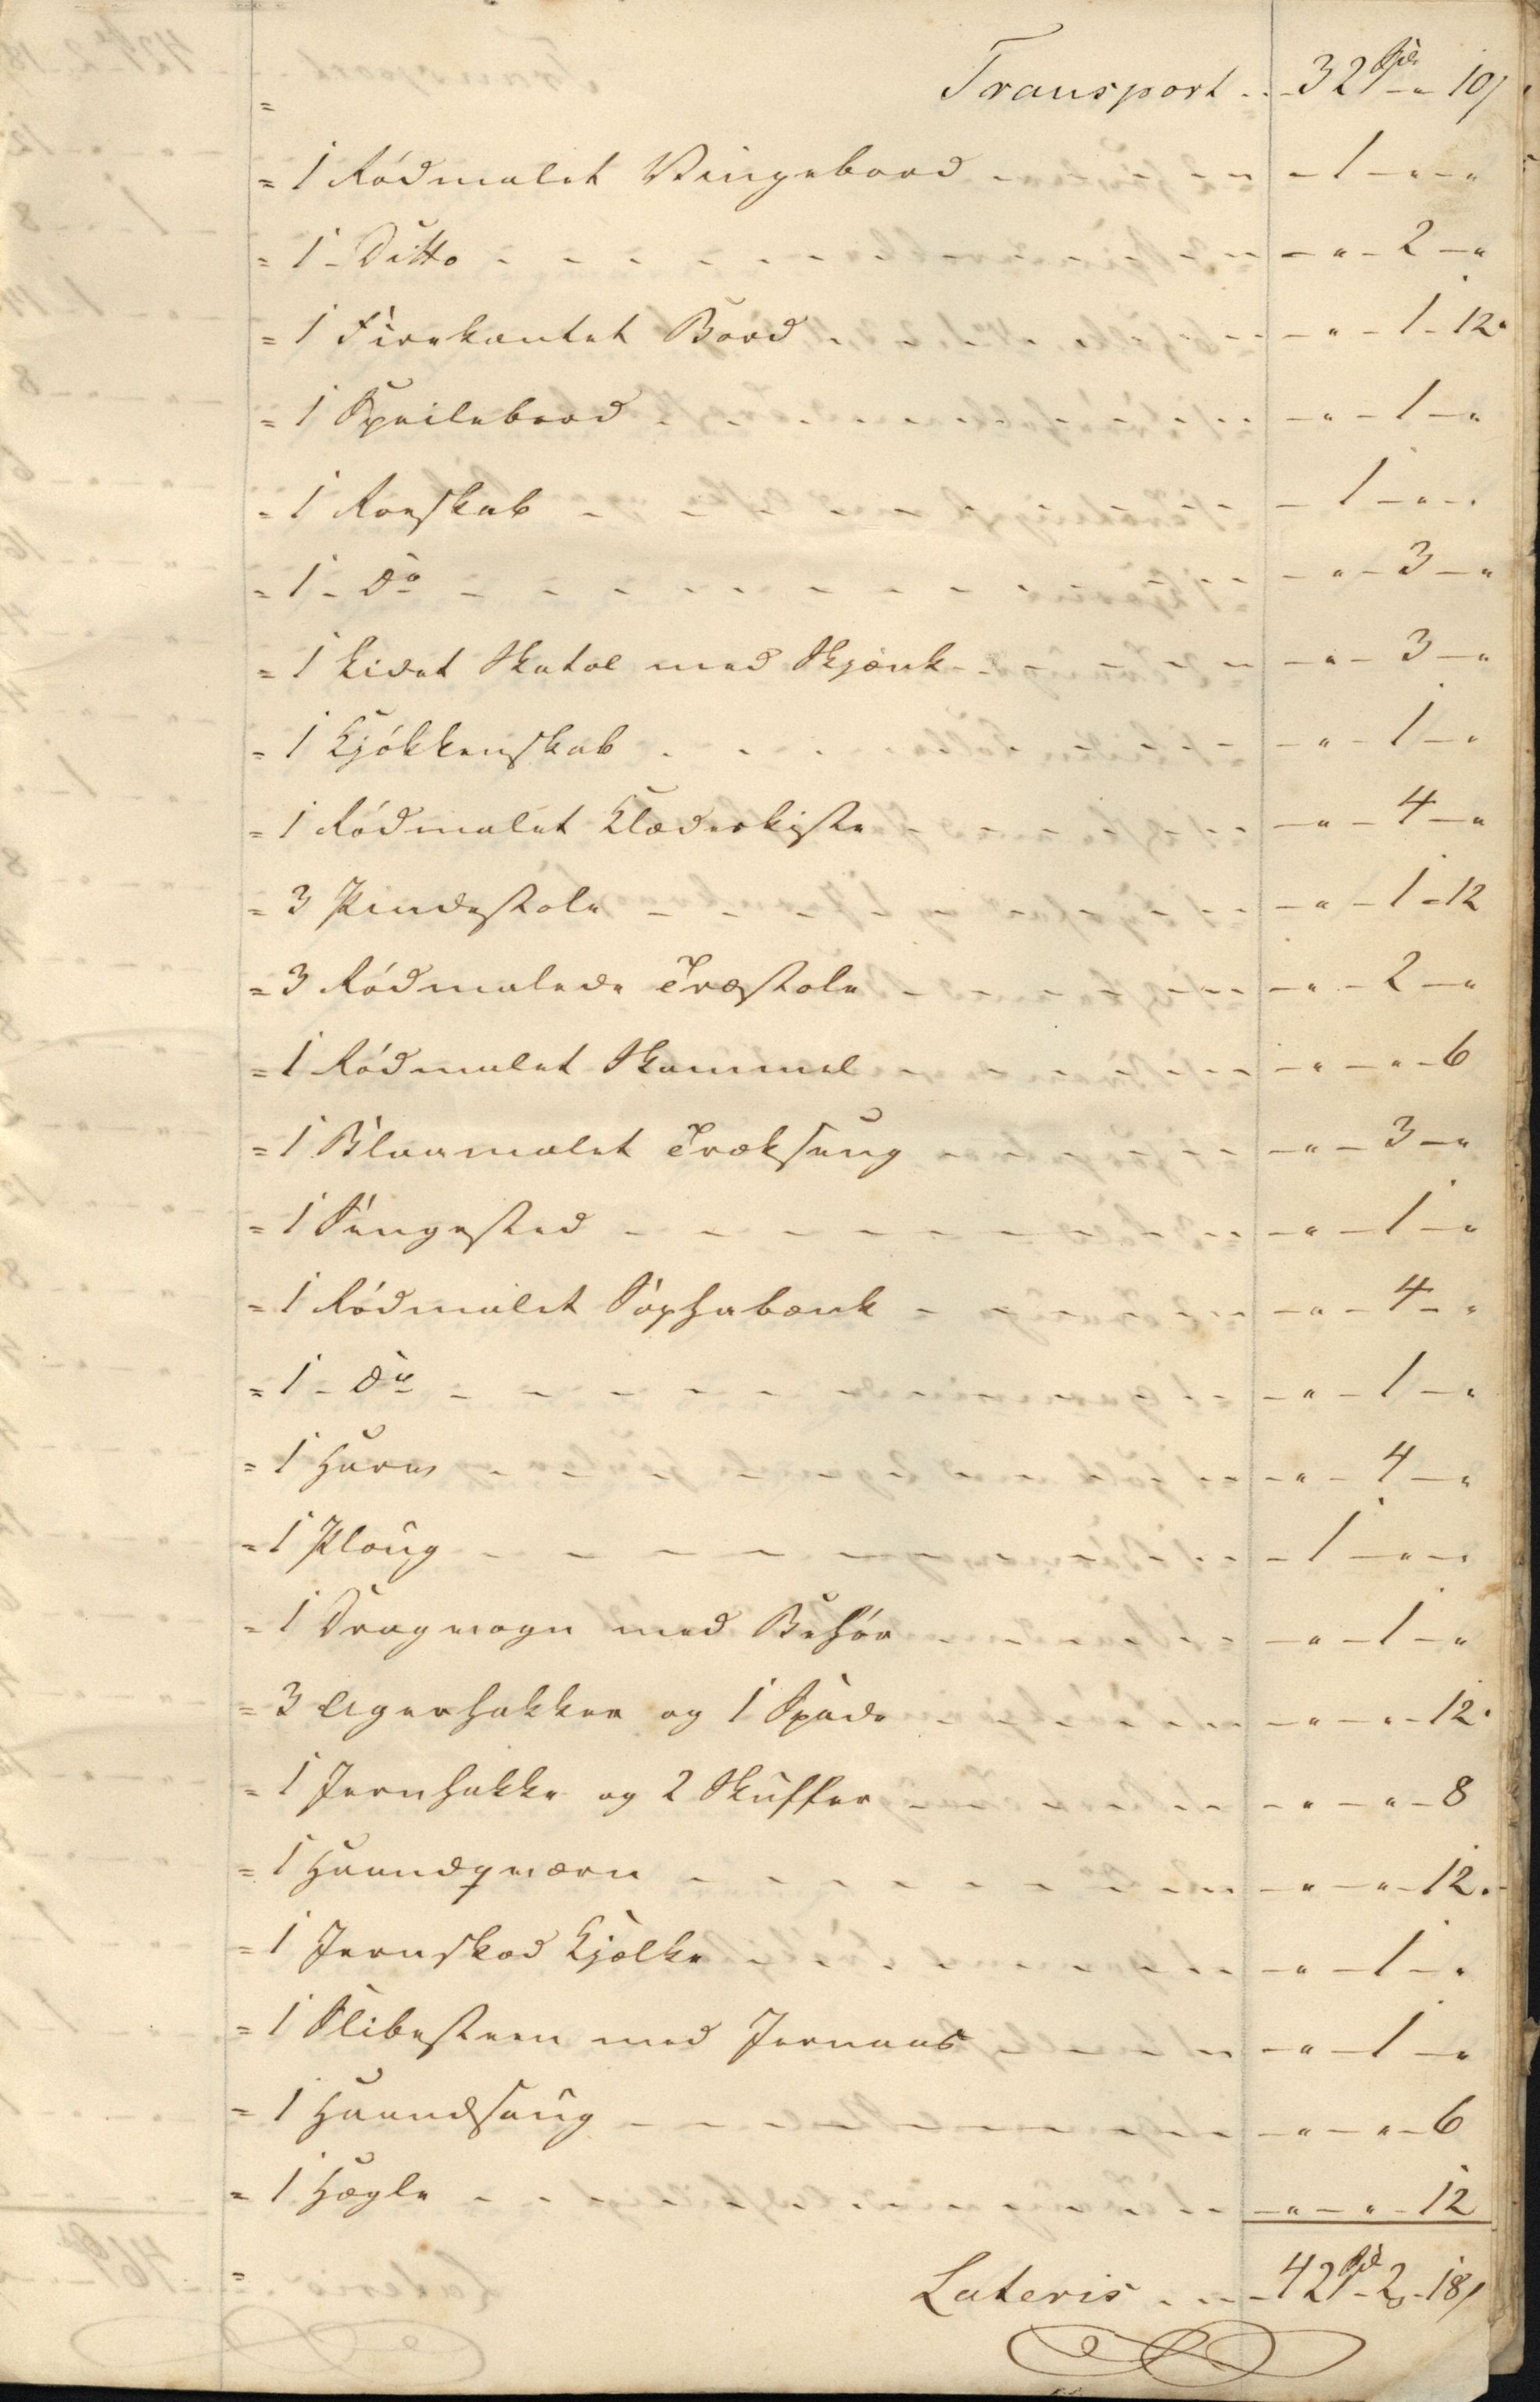 Transport - - 32 Spd - " - 10/
= 1 Rödmalet Vingebord - - - 1 - " - "
= 1 - Ditto - - - " - 2 - "
= 1 Firekantet Bord - - - " - 1 - 12
= 1 Speilebord - - - " - 1 - "
= 1 Roeskab - - - 1 - " - "
= 1 - Do - - - " - 3 - "
= 1 Lidet Skatol med Skjænk - - - " - 3 - "
= 1 Kjökkenskab - - - " - 1 - "
= 1 Rödmalet Klædeskiste - " - 4 - "
= 3 Pindestole - - - " - 1 - 12
= 3 Rödmalede Træstole - - - " - 2 - "
= 1 Rödmalet Skammel - - - " - " - 6
= 1 Blaamalet Træksæng - - - " - 3 - "
= 1 Sengested - - - " - 1 - "
= 1 Rödmalet Sophabænk - - - " - 4 - "
= 1 - Do - - - " - 1 - "
= 1 Harv - - - " - 4 - "
= 1 Ploug - - - 1 - " - "
= 1 Dragvogn med Behör - - - " - 1 - "
= 3 Agerhakker og 1 Spade - - - " - " - 12
= 1 Jernhakke og 2 Skuffer - - - " - " - 8
= 1 Haandqværn - - - " - " - 12
= 1 Jernskod Kjælke - - - " - 1 - "
= 1 Slibesteen med Jernaas - " - 1 - "
= 1 Haandsaug - - - " - " - 6
= 1 Hægle - - - " - " - 12
Lateris - - - 42 Spd - 2 - 18/